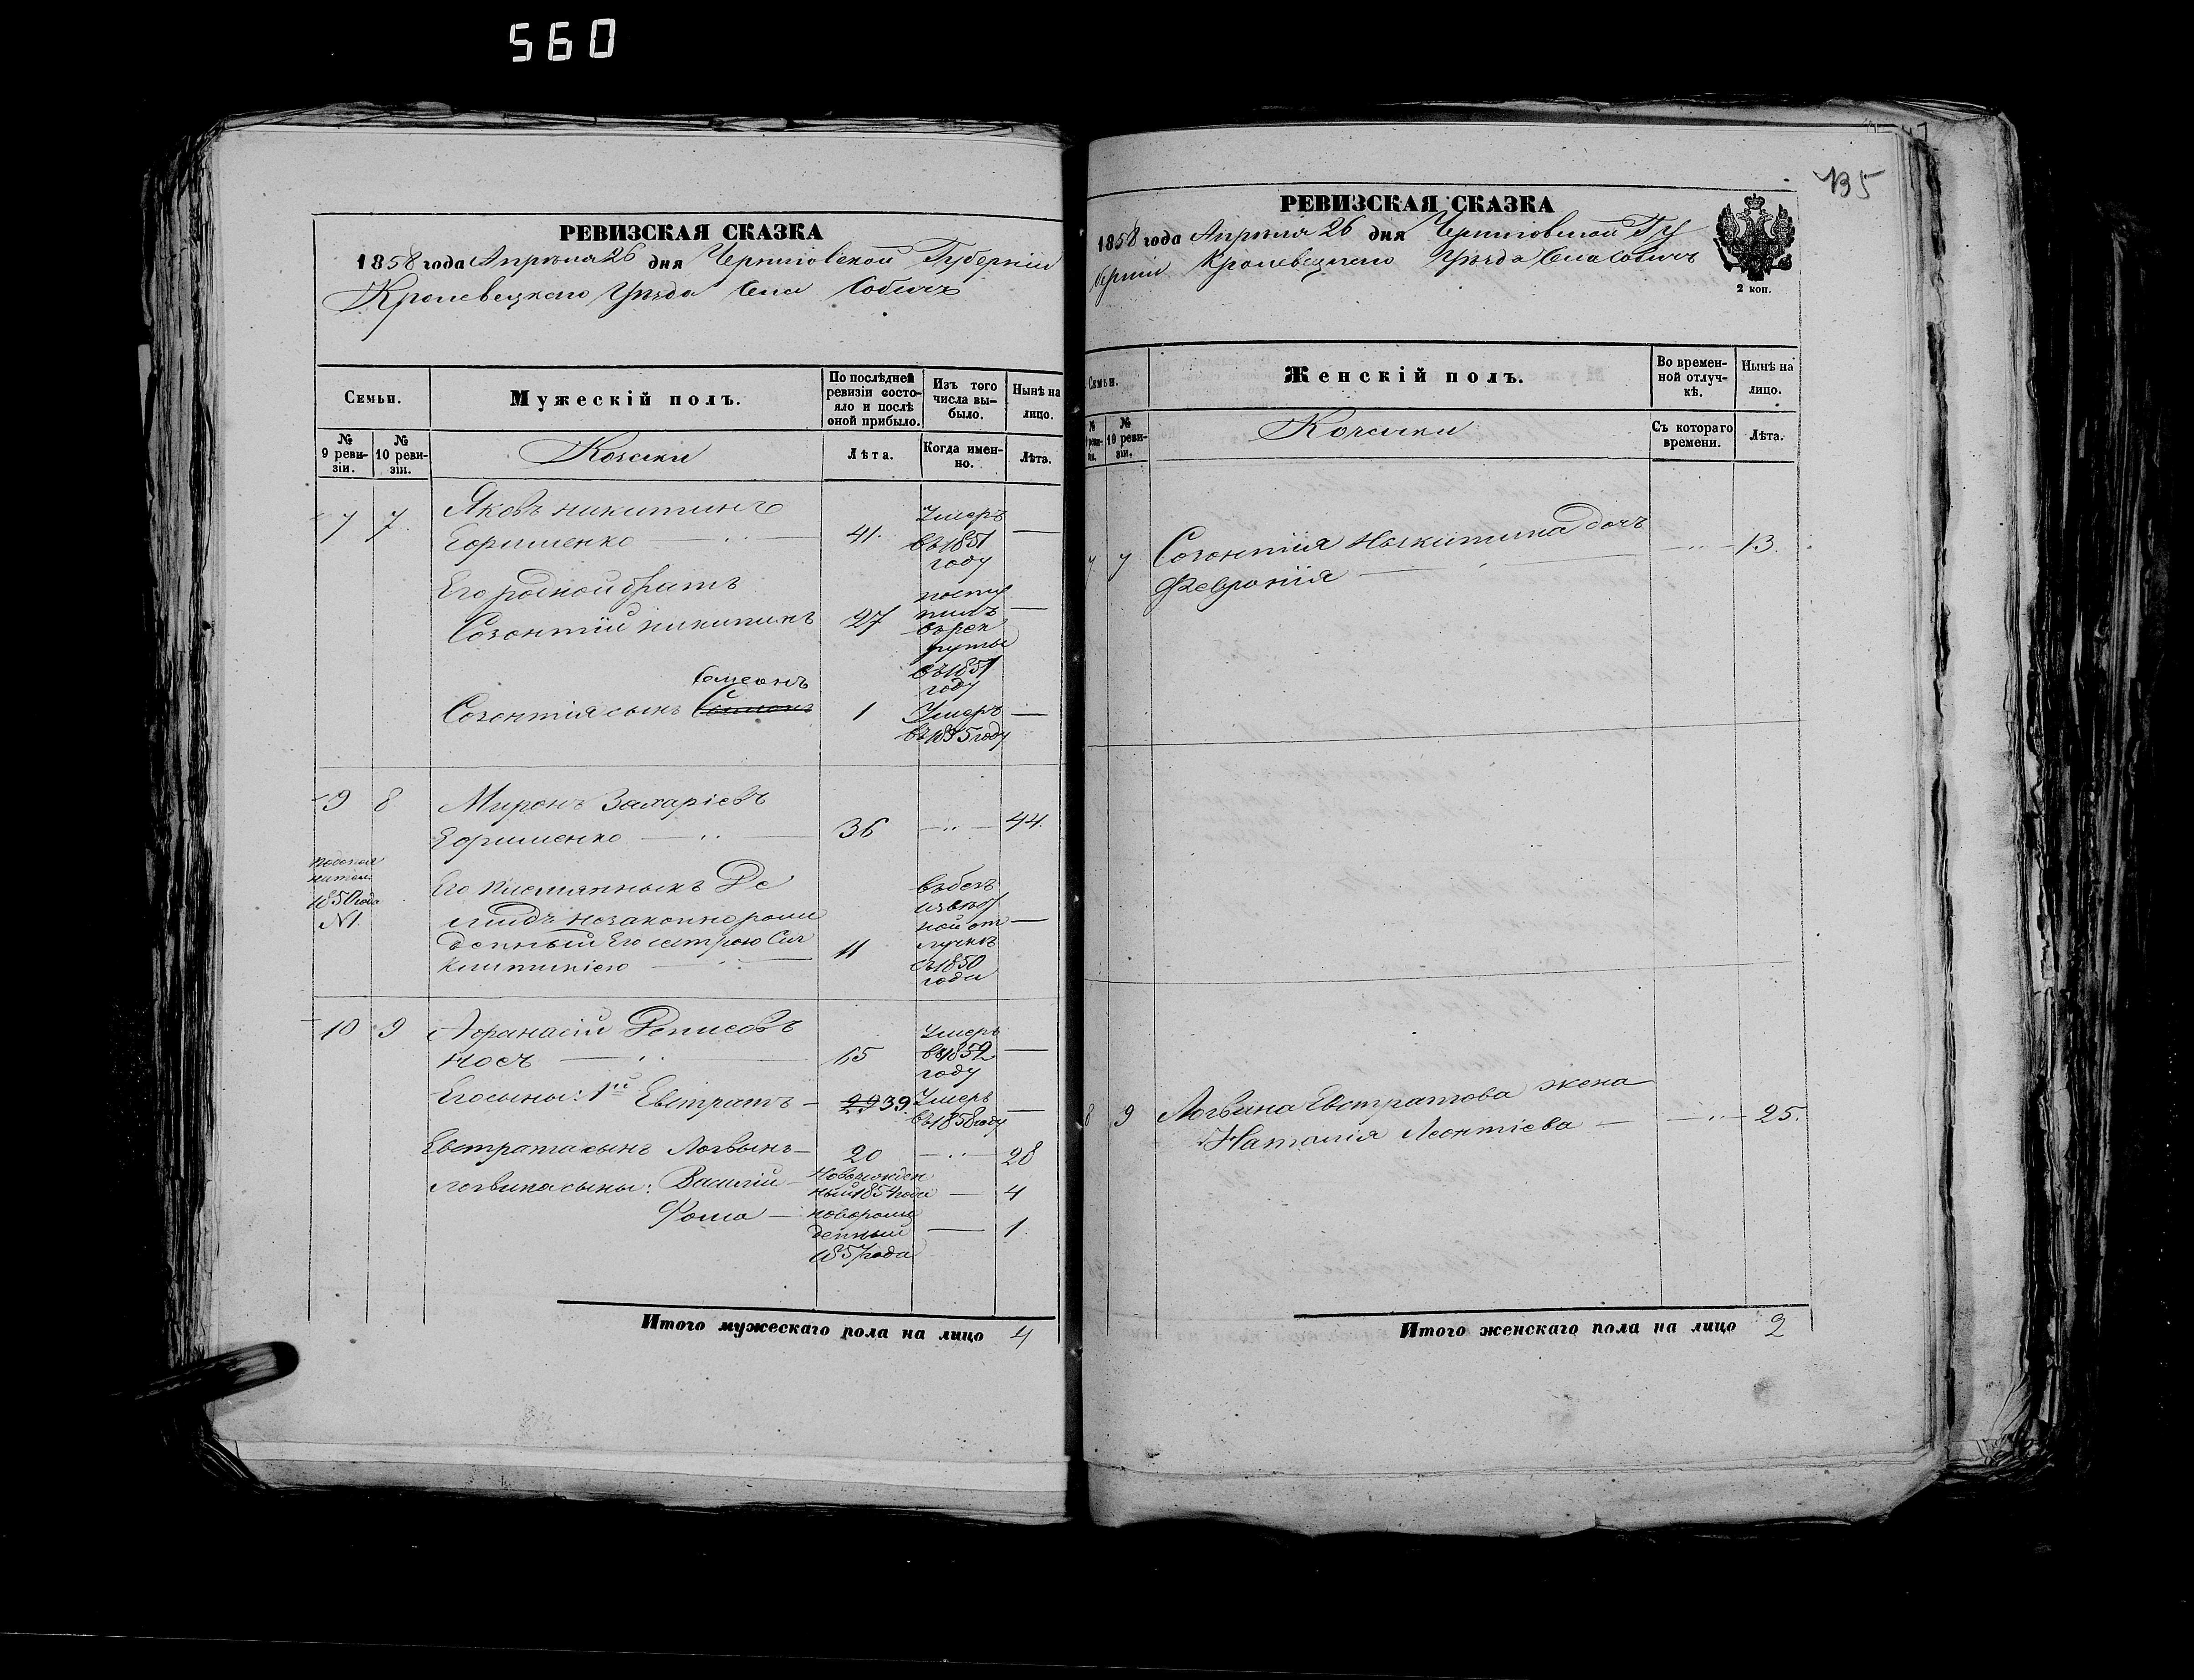 560
РЕВИЗСКАЯ СКАЗКА
1858 года Апреля 26 дня Черниговской Губерніи
Кролевецкаго Уѣзда Села Собичъ
Семьи.
Мужескій полъ.
По послѣдней ревизіи состояло и послѣ оной прибыло.
Изъ того числа выбыло.
Нынѣ на лицо.
№ 9 ревизіи.
№ 10 ревизіи.
Козаки
Лѣта.
Когда именно.
Лѣта.
7 7 Яковъ Никитинъ
Ефименко 41. Умеръ въ 1851 году —
Его родной братъ
Созонтій Никитинъ 27 поступилъ въ рекруты въ 1851 году —
Симеонъ
Созонтія сынъ 1 Умеръ въ 1855 году —
9 8 Миронъ Захаріевъ
Ефименко 36 — 44.
1850 года
№1.
Его племянникъ Де
мидъ незаконно рож
денный Его сестрою
11 въ безъизвѣстной отлучкѣ съ 1850 года —
10 9 Афанасій Денисовъ
Носъ 65 Умеръ въ 1852 году —
Его сыны: 1й Евстратъ — 29 39. Умеръ въ 1858 году —
Евстрата сынъ Логвинъ — 20 — 28
Логвина сыны: Василій — Новорожденный 1854 года — 4
Фома — новорожденный 1857 года — 1.
Итого мужескаго пола на лицо 4
135
РЕВИЗСКАЯ СКАЗКА
1858 года Апреля 26 дня Черниговской Гу
берніи Кролевецкаго Уѣзда Села Собичъ
2 коп.
Семьи.
Женскій полъ.
Во временной отлучкѣ.
Нынѣ на лицо.
№ 9 ревизіи.
№ 10 ревизіи.
Козачки
Съ котораго времени.
Лѣта.
7 7 Созонтія Никитина дочь
Февронія — 13.
9 Логвина Евстратова жена
Наталія Леонтіева — 25.
Итого женскаго пола на лицо 2